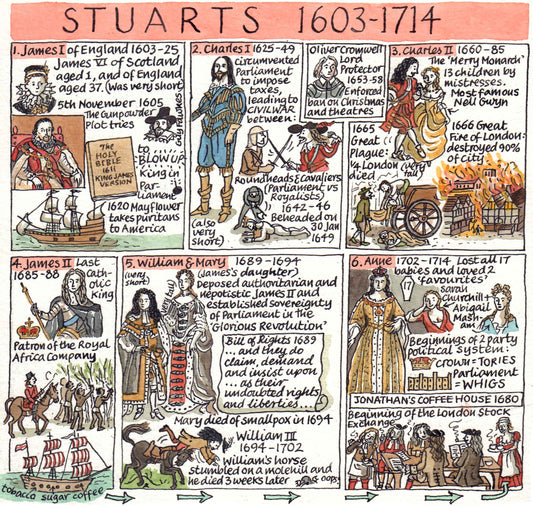 STUARTS 1603-1714
1. James I of England 1603-25
James VI of Scotland
aged 1, and of England
aged 37. (Was very short)
5th November 1605
The Gunpowder
Plot tries
GUY FAWKES
to
BLOW UP
King in
Par-
liament
THE
HOLY
BIBLE
1611
KING JAMES
VERSION
1620 Mayflower
takes puritans
to America
2. Charles I 1625-49
circumvented
Parliament
to impose
taxes,
leading to
CIVIL WAR
between:
Roundheads & Cavaliers
(Parliament vs
Royalists)
1642-46
Beheaded on
30 Jan
1649
(also
very
short)
Oliver Cromwell
Lord
Protector
1653-58
Enforced
ban on Christmas
and theatres
3. Charles II 1660-85
The 'Merry Monarch'
13 children by
mistresses.
Most famous
Nell Gwyn
1665
Great
Plague:
¼ London
died
(very
tall)
1666 Great
Fire of London:
destroyed 90%
of city
4. James II Last
1685-88 cath-
olic
king
Patron of the Royal
Africa Company
tobacco sugar coffee
5. William & Mary 1689-1694
(very
short)
(tall)
(James's daughter)
Deposed authoritarian and
nepotistic James II and
established sovereignty
of Parliament in the
'Glorious Revolution'
Bill of Rights 1689
... and they do
claim, demand
and insist upon
... as their
undoubted rights
and liberties...
Mary died of smallpox in 1694
William III
1694-1702
William's horse
stumbled on a molehill and
he died 3 weeks later
oops!
6. Anne 1702-1714 Lost all 17
babies and loved 2
'favourites'
Sarah
Churchill +
Abigail
Mash-
am
Beginnings of 2 party
political system:
crown = TORIES
Parliament
= WHIGS
JONATHAN'S COFFEE HOUSE 1680
Beginning of the London Stock
Exchange